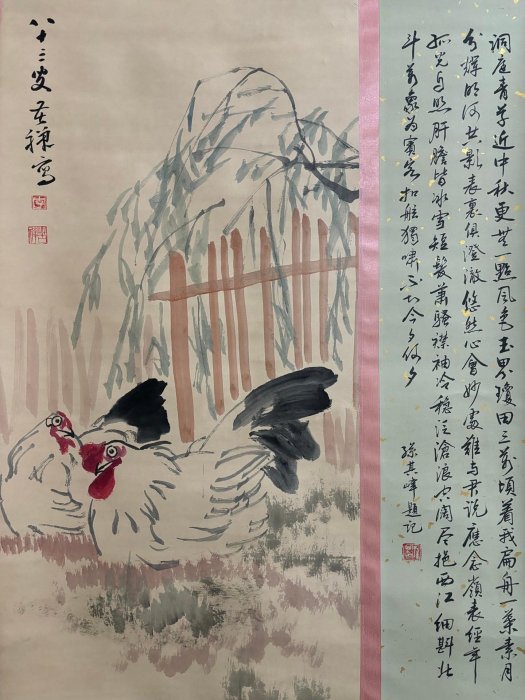 洞庭青草近中秋更無一點風色玉界瓊田三萬頃着我扁舟一葉素月
分輝明河共影表裏俱澄澈悠然心會妙處難與君說應念嶺表經年
孤光自照肝膽皆冰雪短髮蕭騷襟袖冷穩泛滄浪空闊盡挹西江細斟北
斗萬象為賓客扣舷獨嘯不知今夕何夕
孫其峰題記
八十三叟苦禪寫